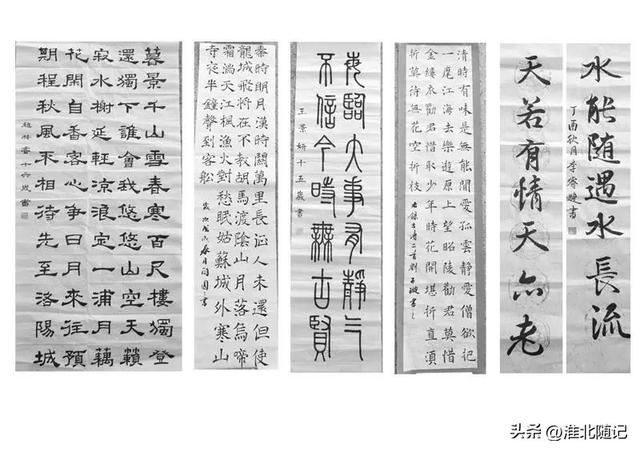 水能随遇水長流
丁酉秋月李 婕書
天若有情天亦老
清時有味是無能閒愛孤雲靜愛僧欲把
一麾江海去樂遊原上望昭陵勸君莫惜
金縷衣勸君惜取少年時花開堪折直須
折莫待無花空折枝
右錄古詩二首劉子璇書之
每臨大事有靜氣
不信今時無古賢
王景妍十五歲書
秦時明月漢時關萬里長征人未還但使
龍城飛將在不教胡馬渡陰山月落烏啼
霜滿天江楓漁火對愁眠姑蘇城外寒山
寺夜半鐘聲到客船
歲次戊戌春月
暮景千山雪春寒百尺樓獨登
還獨下誰會我悠悠山空天籟
寂水榭延輕涼浪定一浦月藕
花閒自香客心爭日月來往預
期程秋風不相待先至洛陽城
十六歲書
头条 @淮北随记